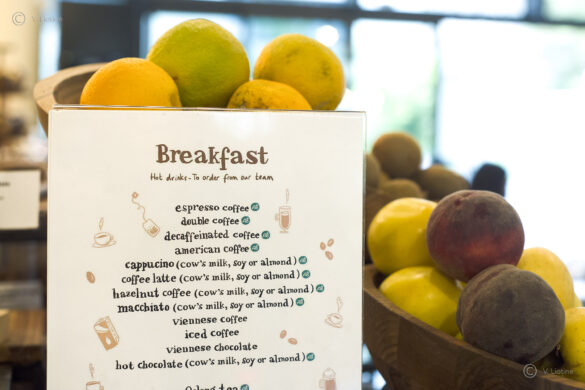 © V. Liotine
Breakfast
Hot drinks - To order from our team
espresso coffee
double coffee
decaffeinated coffee
american coffee
cappucino (cow's milk, soy or almond)
coffee latte (cow's milk, soy or almond)
hazelnut coffee (cows milk, soy or almond)
macchiato (cow's milk, soy or almond)
viennese coffee
iced coffee
viennese chocolate
hot chocolate (cow's milk, soy or almond)
© V. Liotine